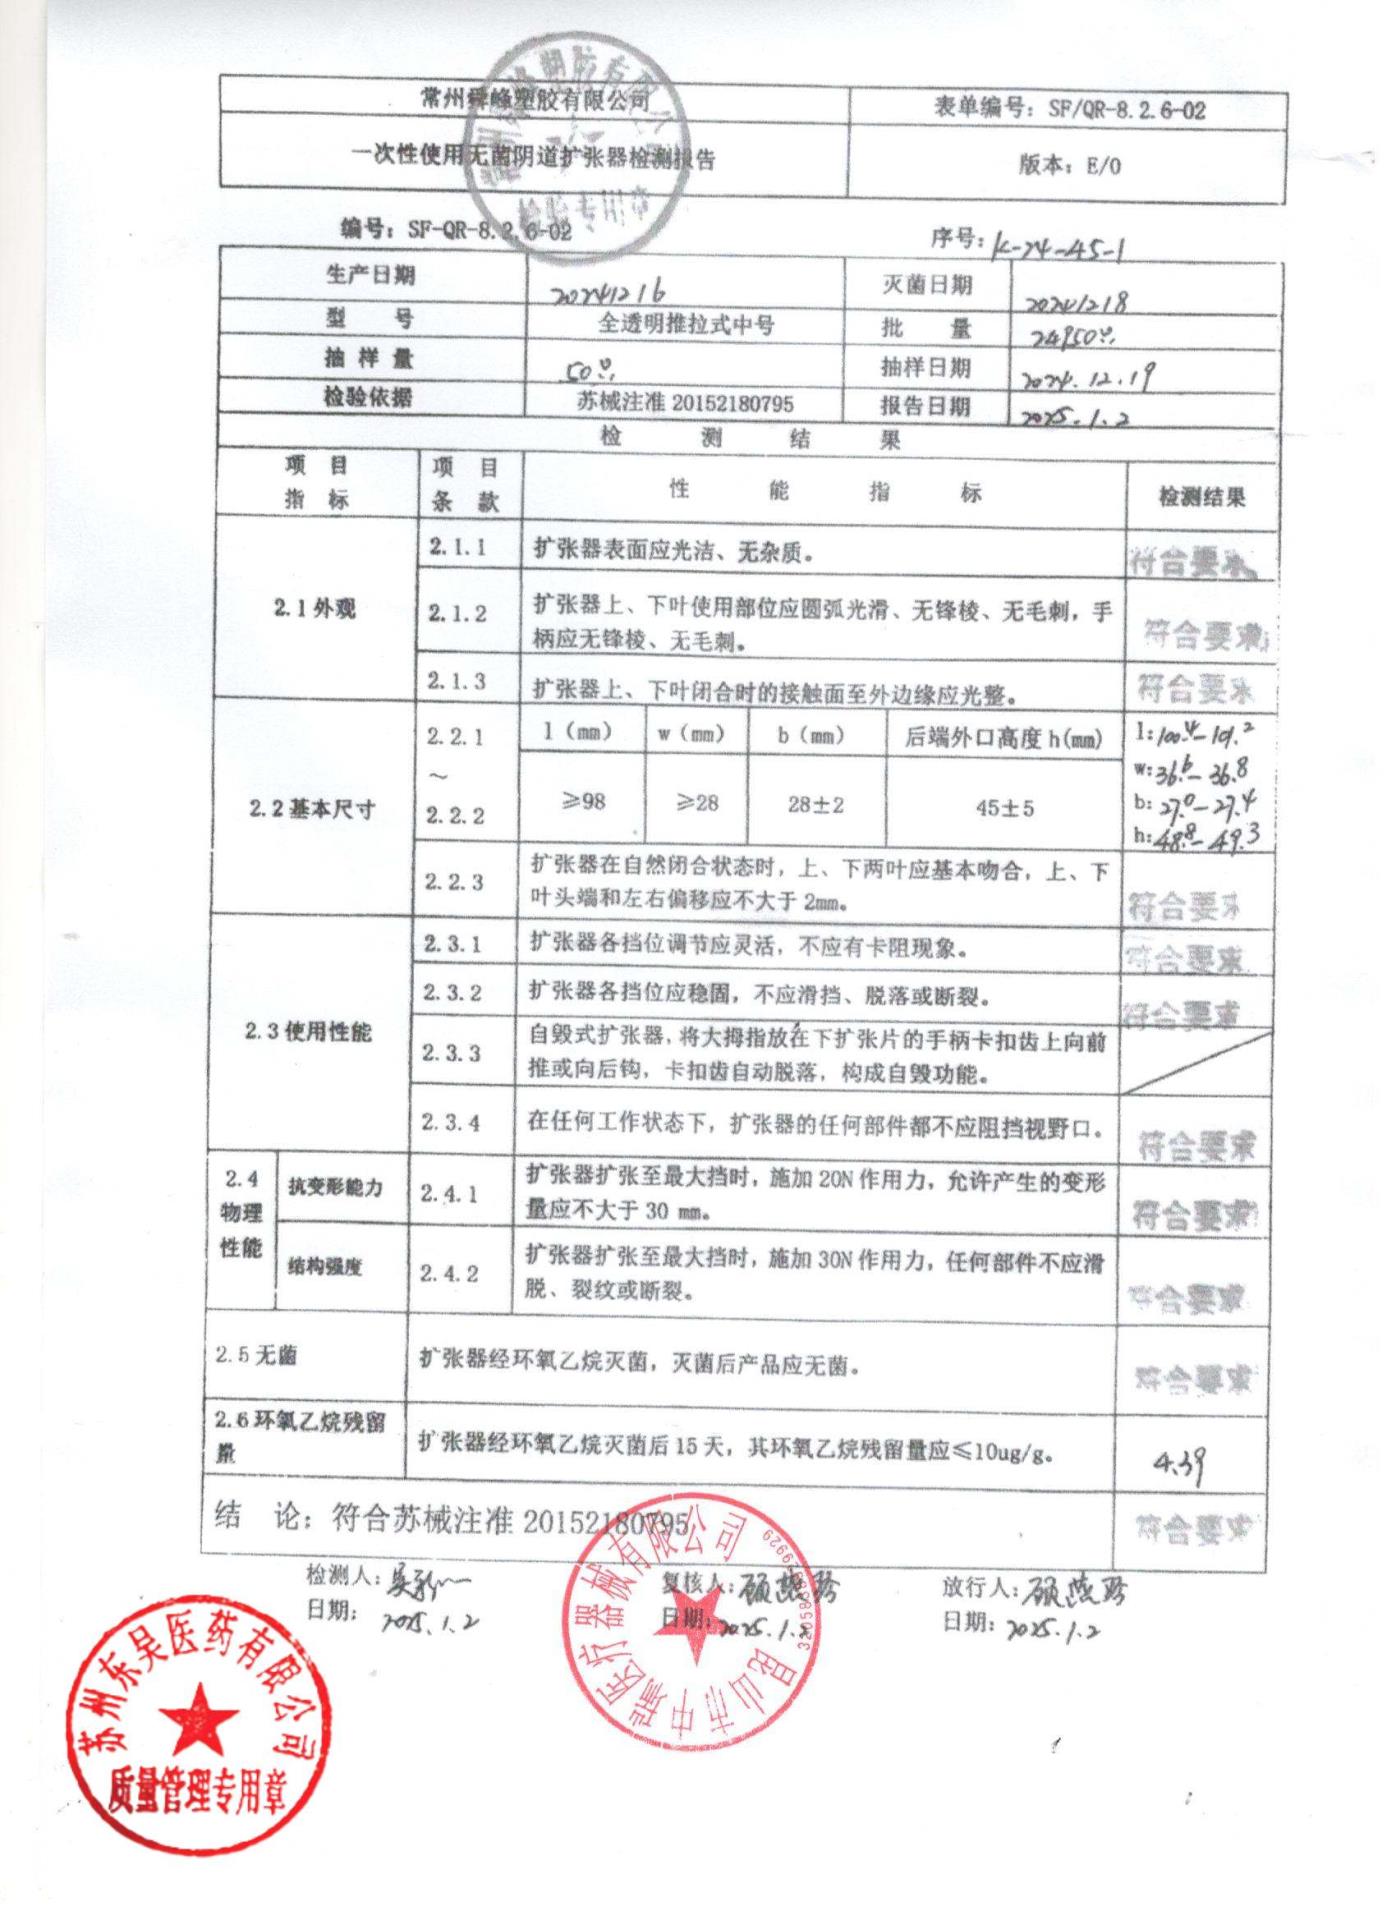 常州舜峰塑胶有限公司
表单编号：SF/QR-8.2.6-02
一次性使用无菌阴道扩张器检测报告
版本：E/0
检验专用章
编号：SF-QR-8.2.6-02
序号：K-24-45-1
生产日期 20241216 灭菌日期 20241218
型 号 全透明推拉式中号 批 量 24950只
抽 样 量 50只 抽样日期 2024.12.19
检验依据 苏械注准 20152180795 报告日期 2025.1.2
检 测 结 果
项 目 指 标 项 目 条 款 性 能 指 标 检测结果
2.1 外观
2.1.1 扩张器表面应光洁、无杂质。 符合要求
2.1.2 扩张器上、下叶使用部位应圆弧光滑、无锋棱、无毛刺，手
柄应无锋棱、无毛刺。 符合要求
2.1.3 扩张器上、下叶闭合时的接触面至外边缘应光整。 符合要求
2.2 基本尺寸
2.2.1
～
2.2.2
l（mm） w（mm） b（mm） 后端外口高度 h(mm)
≥98 ≥28 28±2 45±5
l:100.4-101.2
w:36.6-36.8
b:27.0-27.4
h:48.8-49.3
2.2.3 扩张器在自然闭合状态时，上、下两叶应基本吻合，上、下
叶头端和左右偏移应不大于 2mm。 符合要求
2.3 使用性能
2.3.1 扩张器各挡位调节应灵活，不应有卡阻现象。 符合要求
2.3.2 扩张器各挡位应稳固，不应滑挡、脱落或断裂。 符合要求
2.3.3 自毁式扩张器，将大拇指放在下扩张片的手柄卡扣齿上向前
推或向后钩，卡扣齿自动脱落，构成自毁功能。
2.3.4 在任何工作状态下，扩张器的任何部件都不应阻挡视野口。 符合要求
2.4
物理
性能
抗变形能力 2.4.1 扩张器扩张至最大挡时，施加 20N 作用力，允许产生的变形
量应不大于 30 mm。 符合要求
结构强度 2.4.2 扩张器扩张至最大挡时，施加 30N 作用力，任何部件不应滑
脱、裂纹或断裂。 符合要求
2.5 无菌 扩张器经环氧乙烷灭菌，灭菌后产品应无菌。 符合要求
2.6 环氧乙烷残留
量 扩张器经环氧乙烷灭菌后 15 天，其环氧乙烷残留量应≤10ug/g。 4.39
结 论：符合苏械注准 20152180795 符合要求
检测人： 复核人：顾燕珍 放行人：顾燕珍
日期：2025.1.2 日期：2025.1.2 日期：2025.1.2
昆山市中瑞医疗器械有限公司
苏州东吴医药有限公司
质量管理专用章